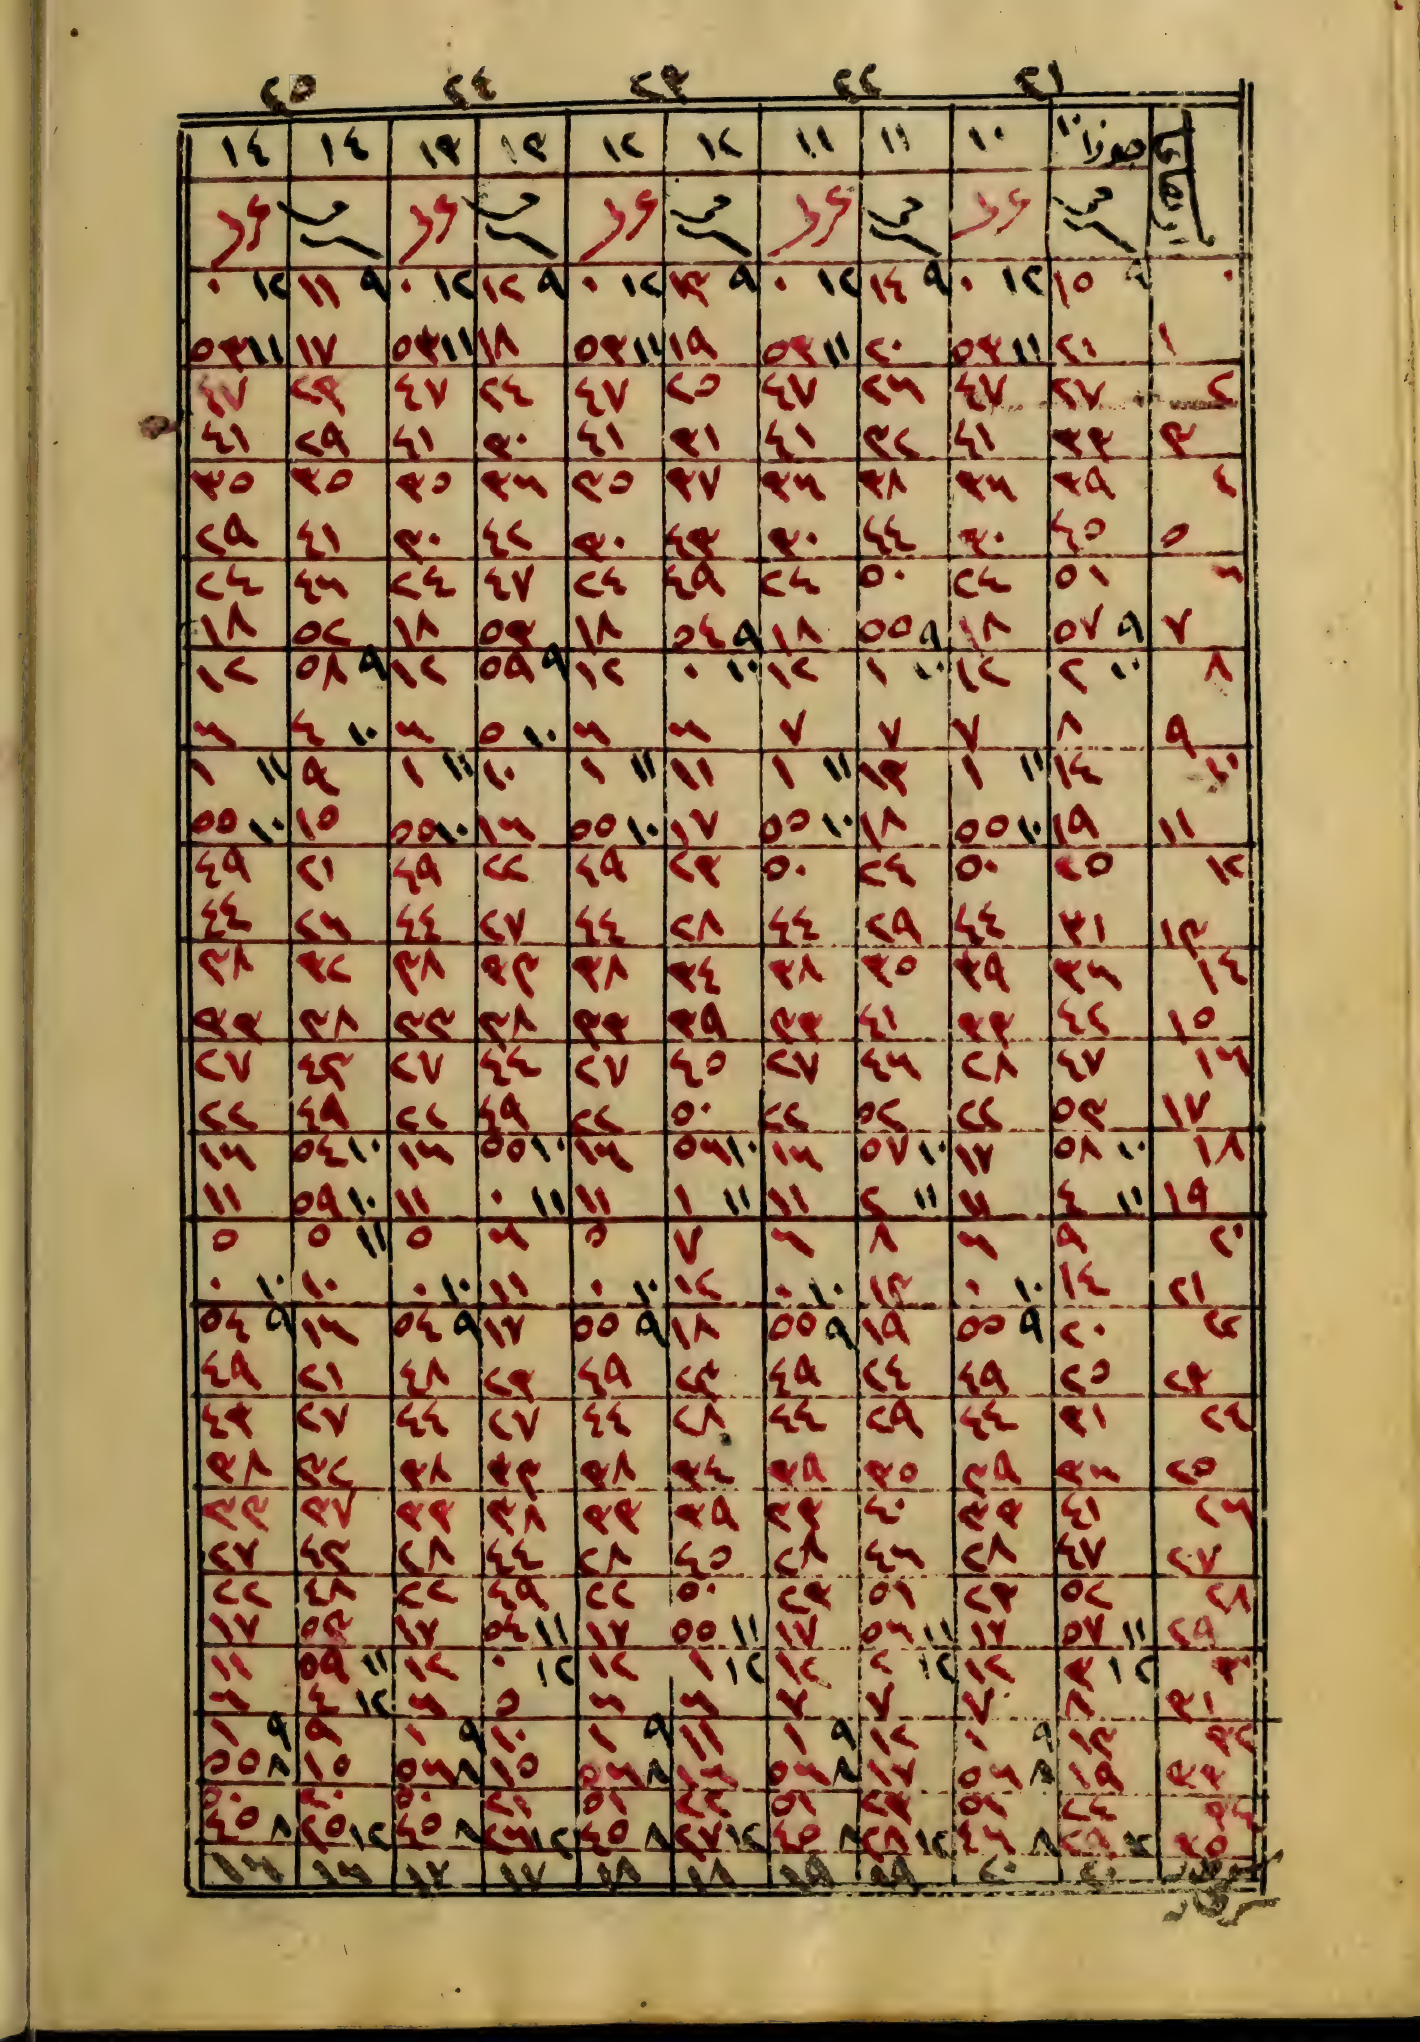 ٢١ ٢٢ ٢٣ ٢٤ ٢٥
ارتفاع جوزا ١٠ ١٠ ١١ ١١ ١٢ ١٢ ١٣ ١٣ ١٤ ١٤
٠ ٩ ١٥ ١٢ ٠ ٩ ١٤ ١٢ ٠ ٩ ١٣ ١٢ ٠ ٩ ١٢ ١٢ ٠ ٩ ١١ ١٢ ٠
١ ٢١ ١١ ٥٣ ٢٠ ١١ ٥٣ ١٩ ١١ ٥٣ ١٨ ١١ ٥٣ ١٧ ١١ ٥٣
٢ ٢٧ ٤٧ ٢٦ ٤٧ ٢٥ ٤٧ ٢٤ ٤٧ ٢٣ ٤٧
٣ ٣٣ ٤١ ٣٢ ٤١ ٣١ ٤١ ٣٠ ٤١ ٢٩ ٤١
٤ ٣٩ ٣٦ ٣٨ ٣٦ ٣٧ ٣٥ ٣٦ ٣٥ ٣٥ ٣٥
٥ ٤٥ ٣٠ ٤٤ ٣٠ ٤٣ ٣٠ ٤٢ ٣٠ ٤١ ٢٩
٦ ٥١ ٢٤ ٥٠ ٢٤ ٤٩ ٢٤ ٤٧ ٢٤ ٤٦ ٢٤
٧ ٩ ٥٧ ١٨ ٩ ٥٥ ١٨ ٩ ٥٤ ١٨ ٥٣ ١٨ ٥٢ ١٨
٨ ١٠ ٢ ١٢ ١٠ ١ ١٢ ١٠ ٠ ١٢ ٩ ٥٩ ١٢ ٩ ٥٨ ١٢
٩ ٨ ٧ ٧ ٧ ٦ ٦ ١٠ ٥ ٦ ١٠ ٤ ٦
١٠ ١٤ ١١ ١ ١٣ ١١ ١ ١١ ١١ ١ ١٠ ١١ ١ ٩ ١١ ١
١١ ١٩ ١٠ ٥٥ ١٨ ١٠ ٥٥ ١٧ ١٠ ٥٥ ١٦ ١٠ ٥٥ ١٥ ١٠ ٥٥
١٢ ٢٥ ٥٠ ٢٤ ٥٠ ٢٣ ٤٩ ٢٢ ٤٩ ٢١ ٤٩
١٣ ٣١ ٤٤ ٢٩ ٤٤ ٢٨ ٤٤ ٢٧ ٤٤ ٢٦ ٤٤
١٤ ٣٦ ٣٩ ٣٥ ٣٨ ٣٤ ٣٨ ٣٣ ٣٨ ٣٢ ٣٨
١٥ ٤٢ ٣٣ ٤١ ٣٣ ٣٩ ٣٣ ٣٨ ٣٣ ٣٨ ٣٣
١٦ ٤٧ ٢٨ ٤٦ ٢٧ ٤٥ ٢٧ ٤٤ ٢٧ ٤٣ ٢٧
١٧ ٥٣ ٢٢ ٥٢ ٢٢ ٥٠ ٢٢ ٤٩ ٢٢ ٤٩ ٢٢
١٨ ١٠ ٥٨ ١٧ ١٠ ٥٧ ١٦ ١٠ ٥٦ ١٦ ١٠ ٥٥ ١٦ ١٠ ٥٤ ١٦
١٩ ١١ ٤ ١١ ١١ ٢ ١١ ١١ ١ ١١ ١١ ٠ ١١ ١٠ ٥٩ ١١
٢٠ ٩ ٦ ٨ ٦ ٧ ٥ ٦ ٥ ١١ ٥ ٥
٢١ ١٤ ١٠ ٠ ١٣ ١٠ ٠ ١٢ ١٠ ٠ ١١ ١٠ ٠ ١٠ ١٠ ٠
٢٢ ٢٠ ٩ ٥٥ ١٩ ٩ ٥٥ ١٨ ٩ ٥٥ ١٧ ٩ ٥٤ ١٦ ٩ ٥٤
٢٣ ٢٥ ٤٩ ٢٤ ٤٩ ٢٣ ٤٩ ٢٣ ٤٨ ٢١ ٤٩
٢٤ ٣١ ٤٤ ٢٩ ٤٤ ٢٨ ٤٤ ٢٧ ٤٤ ٢٧ ٤٣
٢٥ ٣٦ ٣٩ ٣٥ ٣٩ ٣٤ ٣٨ ٣٣ ٣٨ ٣٢ ٣٨
٢٦ ٤١ ٣٣ ٤٠ ٣٣ ٣٩ ٣٣ ٣٨ ٣٣ ٣٧ ٣٣
٢٧ ٤٧ ٢٨ ٤٦ ٢٨ ٤٥ ٢٨ ٤٤ ٢٨ ٤٣ ٢٧
٢٨ ٥٢ ٢٣ ٥١ ٢٣ ٥٠ ٢٢ ٤٩ ٢٢ ٤٨ ٢٢
٢٩ ١١ ٥٧ ١٧ ١١ ٥٦ ١٧ ١١ ٥٥ ١٧ ١١ ٥٤ ١٧ ٥٣ ١٧
٣٠ ١٢ ٣ ١٢ ١٢ ٢ ١٢ ١٢ ١ ١٢ ١٢ ٠ ١٢ ١١ ٥٩ ١١
٣١ ٨ ٧ ٧ ٧ ٦ ٦ ٥ ٦ ١٢ ٤ ٦
٣٢ ١٣ ٩ ١ ١٢ ٩ ١ ١١ ٩ ١ ١٠ ٩ ١ ٩ ٩ ١
٣٣ ١٩ ٨ ٥٦ ١٧ ٨ ٥٦ ١٦ ٨ ٥٦ ١٥ ٨ ٥٦ ١٥ ٨ ٥٥
٣٤ ٢٤ ٥١ ٢٣ ٥١ ٢٢ ٥١ ٢١ ٥٠ ٢٠ ٥٠
٣٥ ١٢ ٢٩ ٨ ٤٦ ١٢ ٢٨ ٨ ٤٥ ١٢ ٢٧ ٨ ٤٥ ١٢ ٢٦ ٨ ٤٥ ١٢ ٢٥ ٨ ٤٥
٢٠ ٢٠ ١٩ ١٩ ١٨ ١٨ ١٧ ١٧ ١٦ ١٦